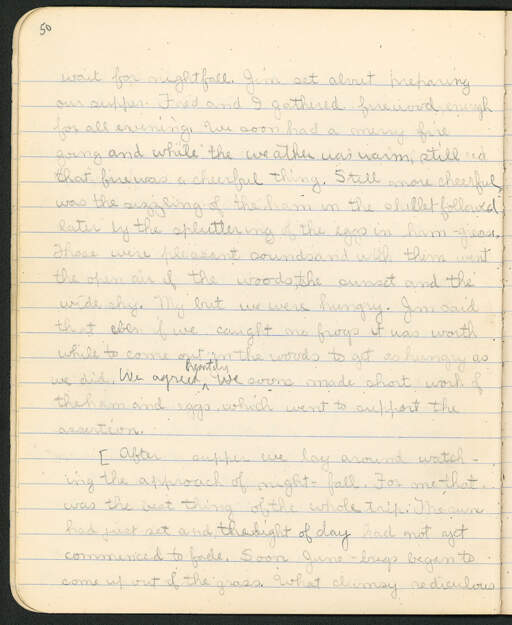 50
wait for nightfall. Jim set about preparing
our supper. Fred and I gathered firewood enough
for all evening. We soon had a merry fire
going and while the weather was warm, still
that fire was a cheerful thing. Still more cheerful
was the sizzling of the ham in the skillet followed
later by the spluttering of the eggs in ham-grease.
Those were pleasant sounds and with them went
the open air of the woods, the sunset and the
wide sky. My but we were hungry. Jim said
that even if we caught no frogs it was worth
while to come out in the woods to get as hungry as
we did. We agreed heartily. We soon made short work of
the ham and eggs, which went to support the
assertion.
[ After supper we lay around watch-
ing the approach of night-fall. For me that
was the best thing of the whole trip. The sun
had just set and the light of day had not yet
commenced to fade. Soon June-bugs began to
come up out of the grass. What clumsy rediculous